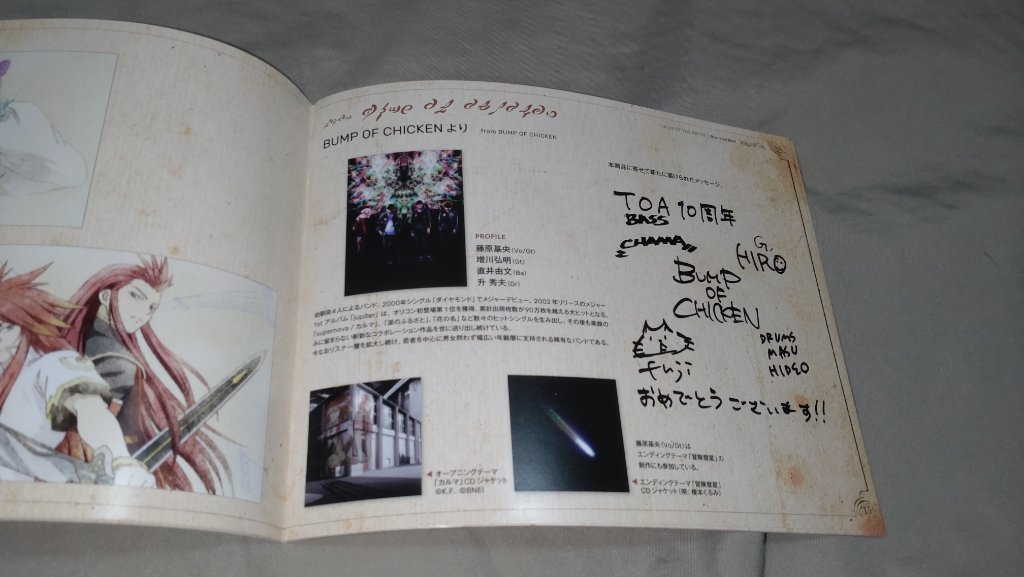 BUMP OF CHICKEN より from BUMP OF CHICKEN
PROFILE
藤原基央(Vo/Gt)
増川弘明(Gt)
直井由文(Ba)
升 秀夫(Dr)
幼馴染4人によるバンド。2000年シングル「ダイヤモンド」でメジャーデビュー。2002年リリースのメジャー
1st アルバム「jupiter」は、オリコン初登場第1位を獲得、累計出荷枚数が90万枚を越える大ヒットとなる。
「supernova / カルマ」、「涙のふるさと」、「花の名」など数々のヒットシングルを生み出し、その後も楽曲の
みに留まらない斬新なコラボレーション作品を世に送り出し続けている。
今なおリスナー層を拡大し続け、若者を中心に男女問わず幅広い年齢層に支持される稀有なバンドである。
オープニングテーマ
「カルマ」CDジャケット
©K.F. ©BNEI
本商品に寄せて新たに届けられたメッセージ。
TOA 10周年
BASS
CHAMA
G.
HIRO
BUMP
OF
CHICKEN
DRUMS
MASU
HIDEO
fuji
おめでとうございます!!
藤原基央(Vo/Gt)は
エンディングテーマ「冒険彗星」の
制作にも参加している。
エンディングテーマ「冒険彗星」
CDジャケット(唄：榎本くるみ)